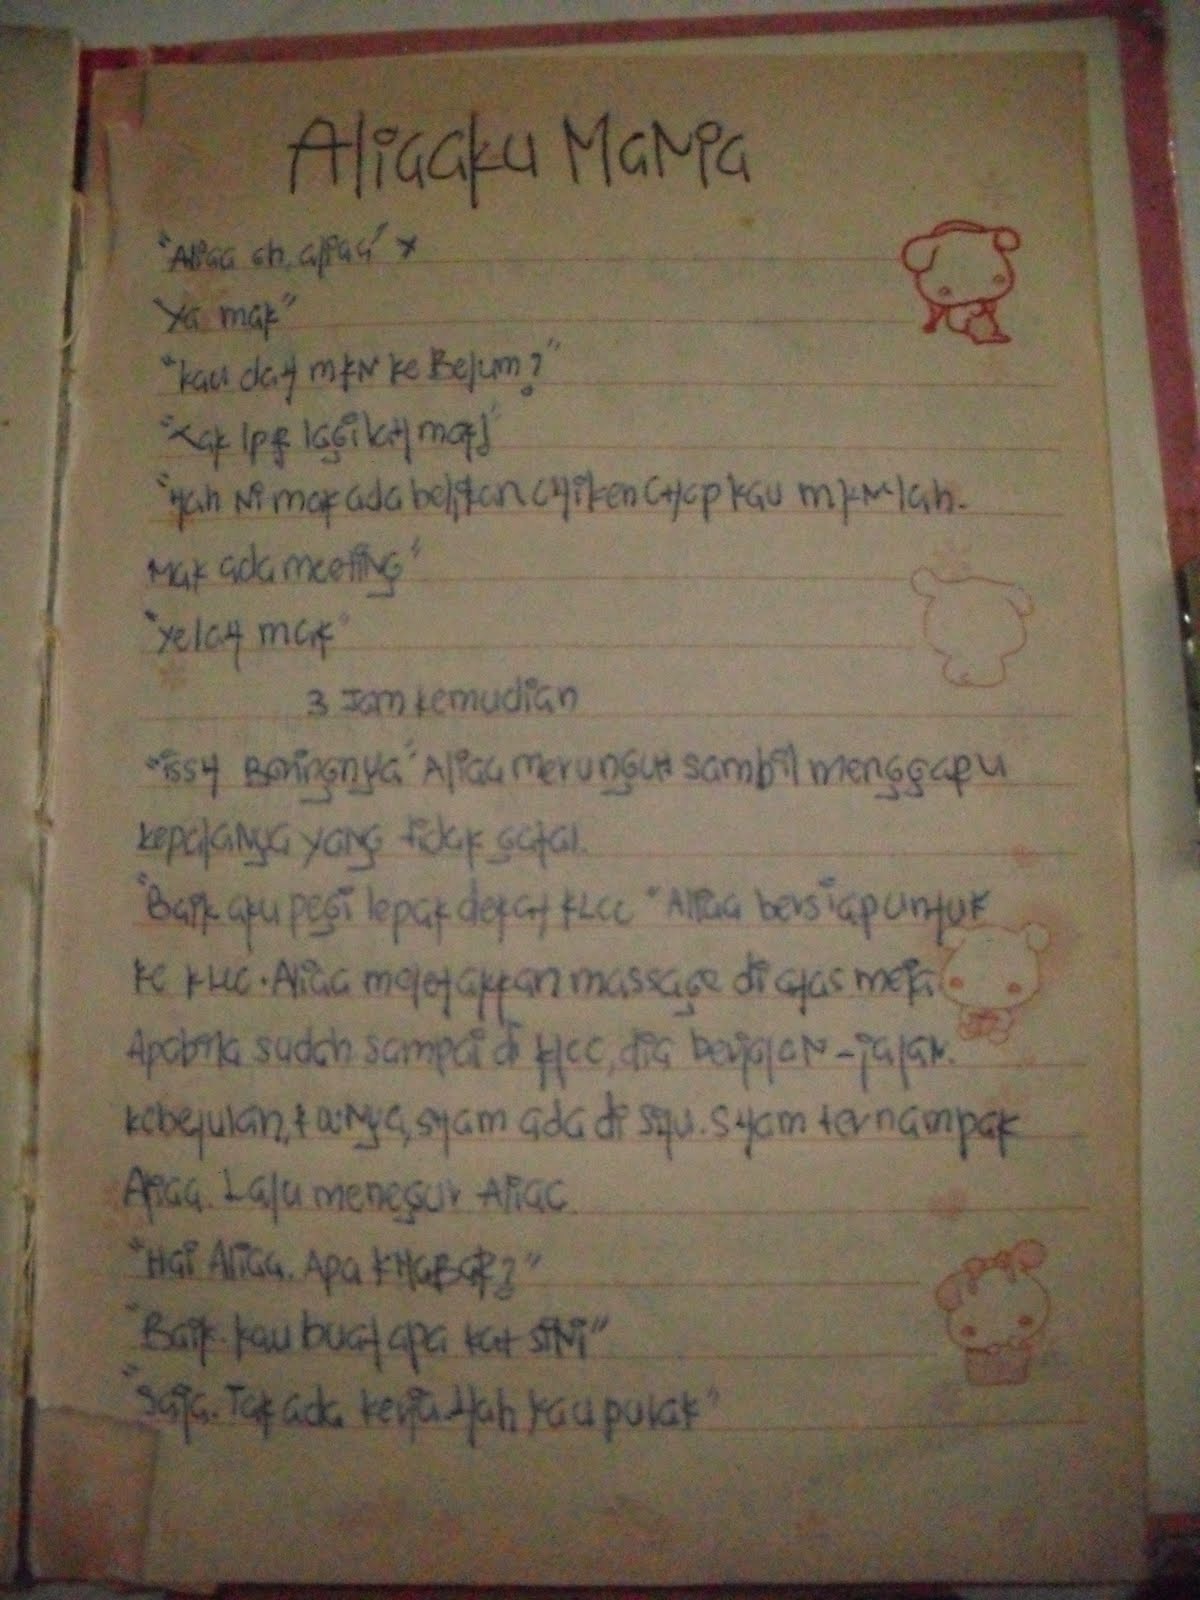 Aliaaku MaNia
"Aliaa oh, aliaa" x
"Ya mak"
"kau dah mkN ke Belum?"
"Tak lpr lagi lah mak"
"Hah Ni mak ada belikan chiken chop kau mkN lah.
Mak ada meeting"
"Yelah mak"
3 Jam kemudian
"issh Boringnya" Aliaa merungut sambil menggaru
kepalaNya yang tidak gatal.
"Baik aku pegi lepak dekat KLCC" Aliaa bersiap untuk
ke KLCC. Aliaa meletakkan massage di atas meja.
Apabila sudah sampai di klcc, dia berjalaN-jalaN.
kebetulan, syam ada di situ. Syam ternampak
Aliaa. Lalu menegur Aliaa
"Hai Aliaa. Apa KHaBaR?"
"Baik. kau buat apa kat SiNi"
"Saja. Tak ada kerja. Hah kau pulak"